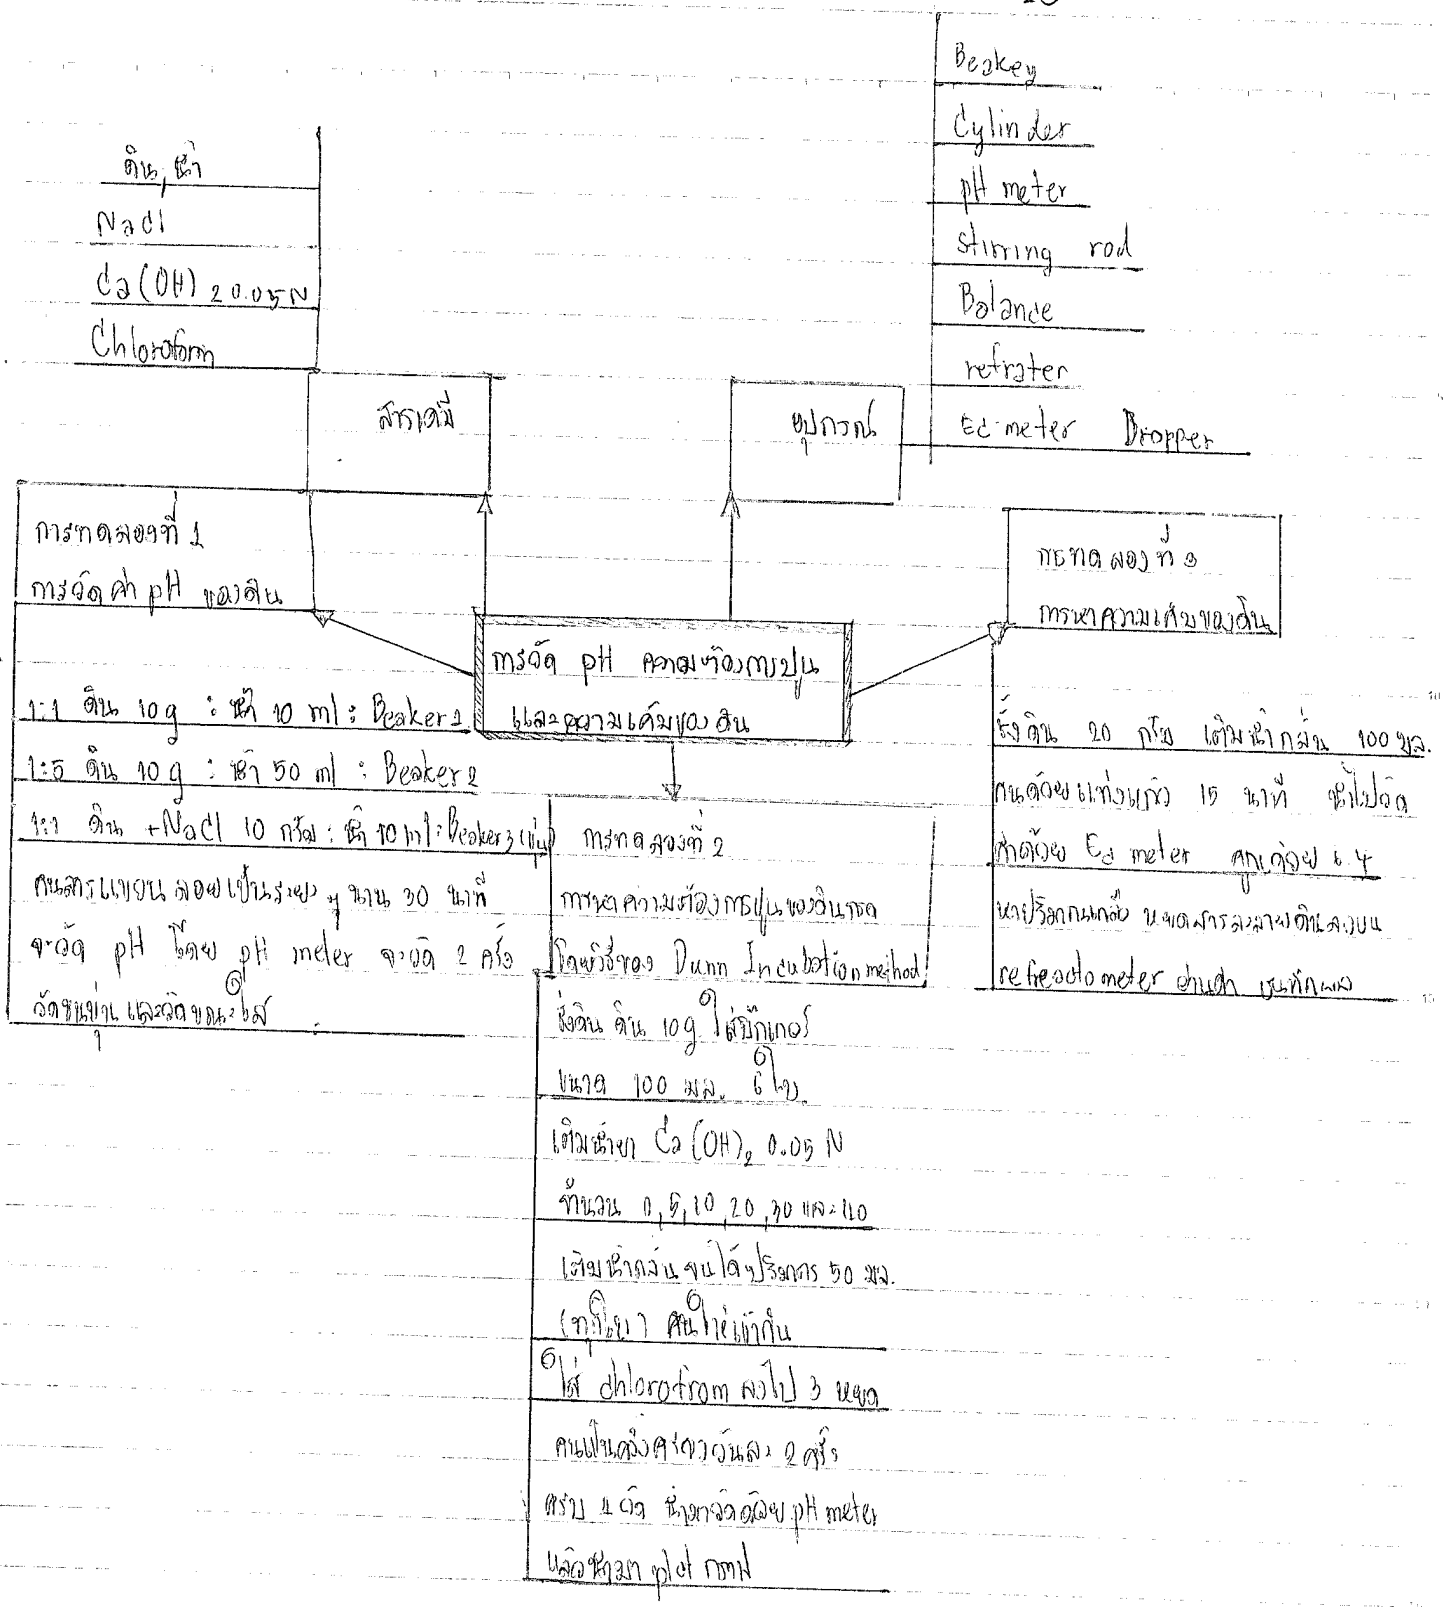 Beakey
Cylinder
pH meter
stirring rod
Balance
refrater
Ec meter Dropper
ดิน, น้ำ
NaCl
Ca(OH)2 0.05N
Chloroform
สารเคมี
อุปกรณ์
การทดลองที่ 1
การวัดค่า pH ของดิน
1:1 ดิน 10 g : น้ำ 10 ml : Beaker 1
1:5 ดิน 10 g : น้ำ 50 ml : Beaker 2
1:1 ดิน + NaCl 10 กรัม : น้ำ 10 ml : Beaker 3 (ขุ่น)
คนสารแขวนลอยเป็นระยะ ๆ นาน 30 นาที
จะวัด pH โดย pH meter จะวัด 2 ครั้ง
วัดขณะขุ่น และวัดขณะใส
การวัด pH ความต้องการปูน
และความเค็มของดิน
การทดลองที่ 3
การหาความเค็มของดิน
ชั่งดิน 20 กรัม เติมน้ำกลั่น 100 มล.
คนด้วยแท่งแก้ว 15 นาที นำไปวัด
ค่าด้วย Ec meter คูณด้วย 6.4
หาปริมาณเกลือ หยดสารละลายดินลงบน
refreactometer อ่านค่า บันทึกผล
การทดลองที่ 2
การหาความต้องการปูนของดินกรด
โดยวิธีของ Dunn Incubation method
ชั่งดิน ดิน 10 g ใส่บีกเกอร์
ขนาด 100 มล. 6 ใบ
เติมน้ำยา Ca(OH)2 0.05 N
จำนวน 0, 5, 10, 20, 30 และ 40
เติมน้ำกลั่นจนได้ปริมาตร 50 มล.
(ทุกใบ) คนให้เข้ากัน
ใส่ chlorofrom ลงไป 3 หยด
คนเป็นครั้งคราววันละ 2 ครั้ง
ครบ 4 วัน นำมาวัดด้วย pH meter
แล้วนำมา plot กราฟ